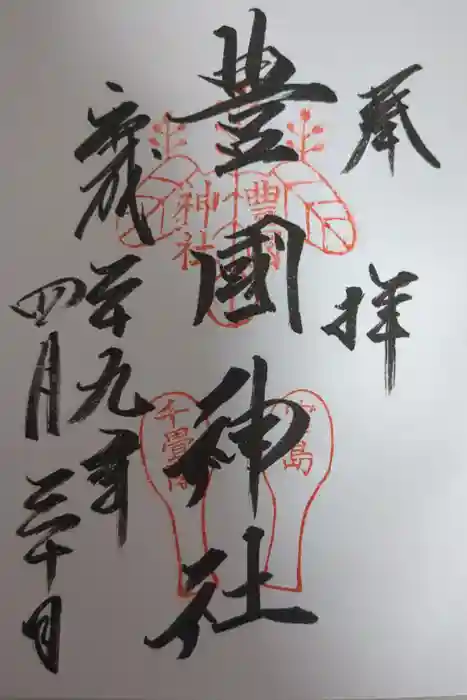 奉拝
豊國神社
平成廿九年
四月三十日
神社
宮島
千畳閣